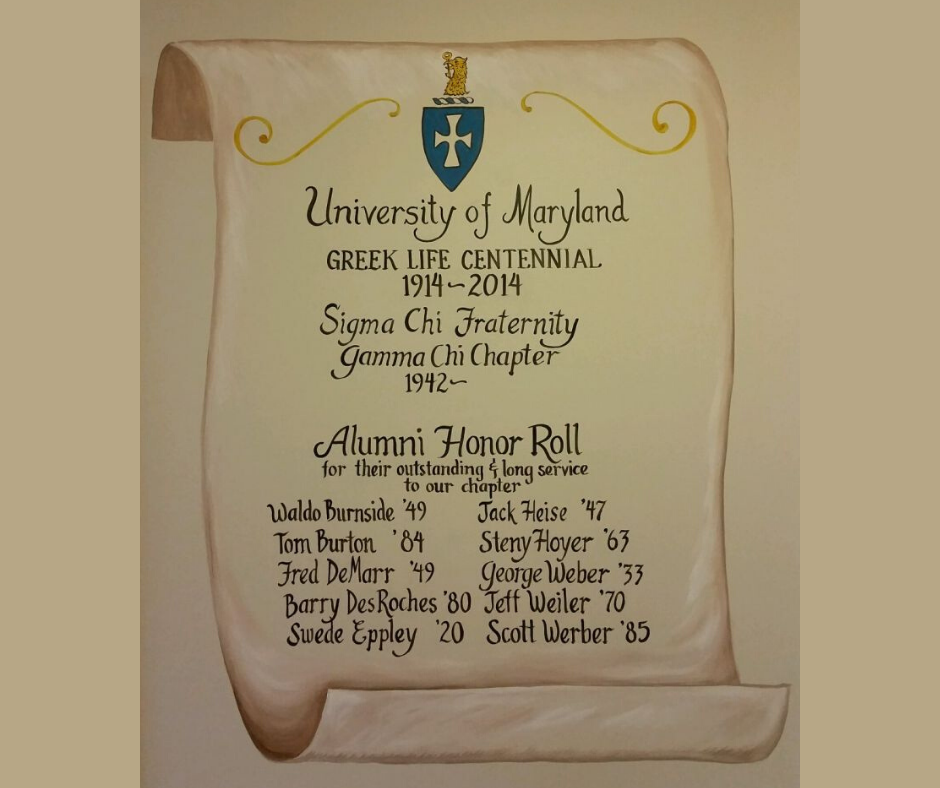 University of Maryland
GREEK LIFE CENTENNIAL
1914~2014
Sigma Chi Fraternity
Gamma Chi Chapter
1942~
Alumni Honor Roll
for their outstanding & long service
to our chapter
Waldo Burnside '49 Jack Heise '47
Tom Burton '84 Steny Hoyer '63
Fred DeMarr '49 George Weber '33
Barry DesRoches '80 Jeff Weiler '70
Swede Eppley '20 Scott Werber '85